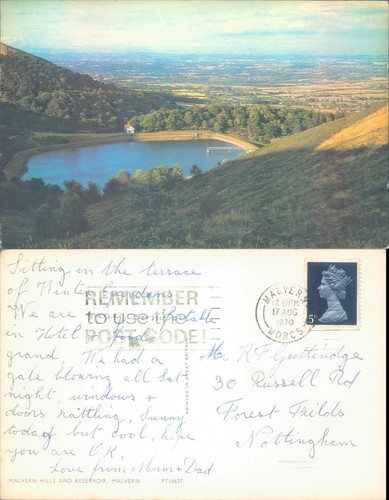 Sitting on the terrace
of Winter Gardens
We are very comfortable
in Hotel & food
grand. We had a
gale blowing all Sat-
night, windows +
doors rattling, Sunny
today but cool, hope
you are O.K.
Love from Mum + Dad
REMEMBER
to use the
POST CODE!
MALVERN
12 PM
17 AUG
1970
WORCS
5
Mr K F Gutteridge
30 Russell Rd
Forest Feilds
Nottingham
PRINTED IN GREAT BRITAIN
MALVERN HILLS AND RESERVOIR, MALVERN
PT10637